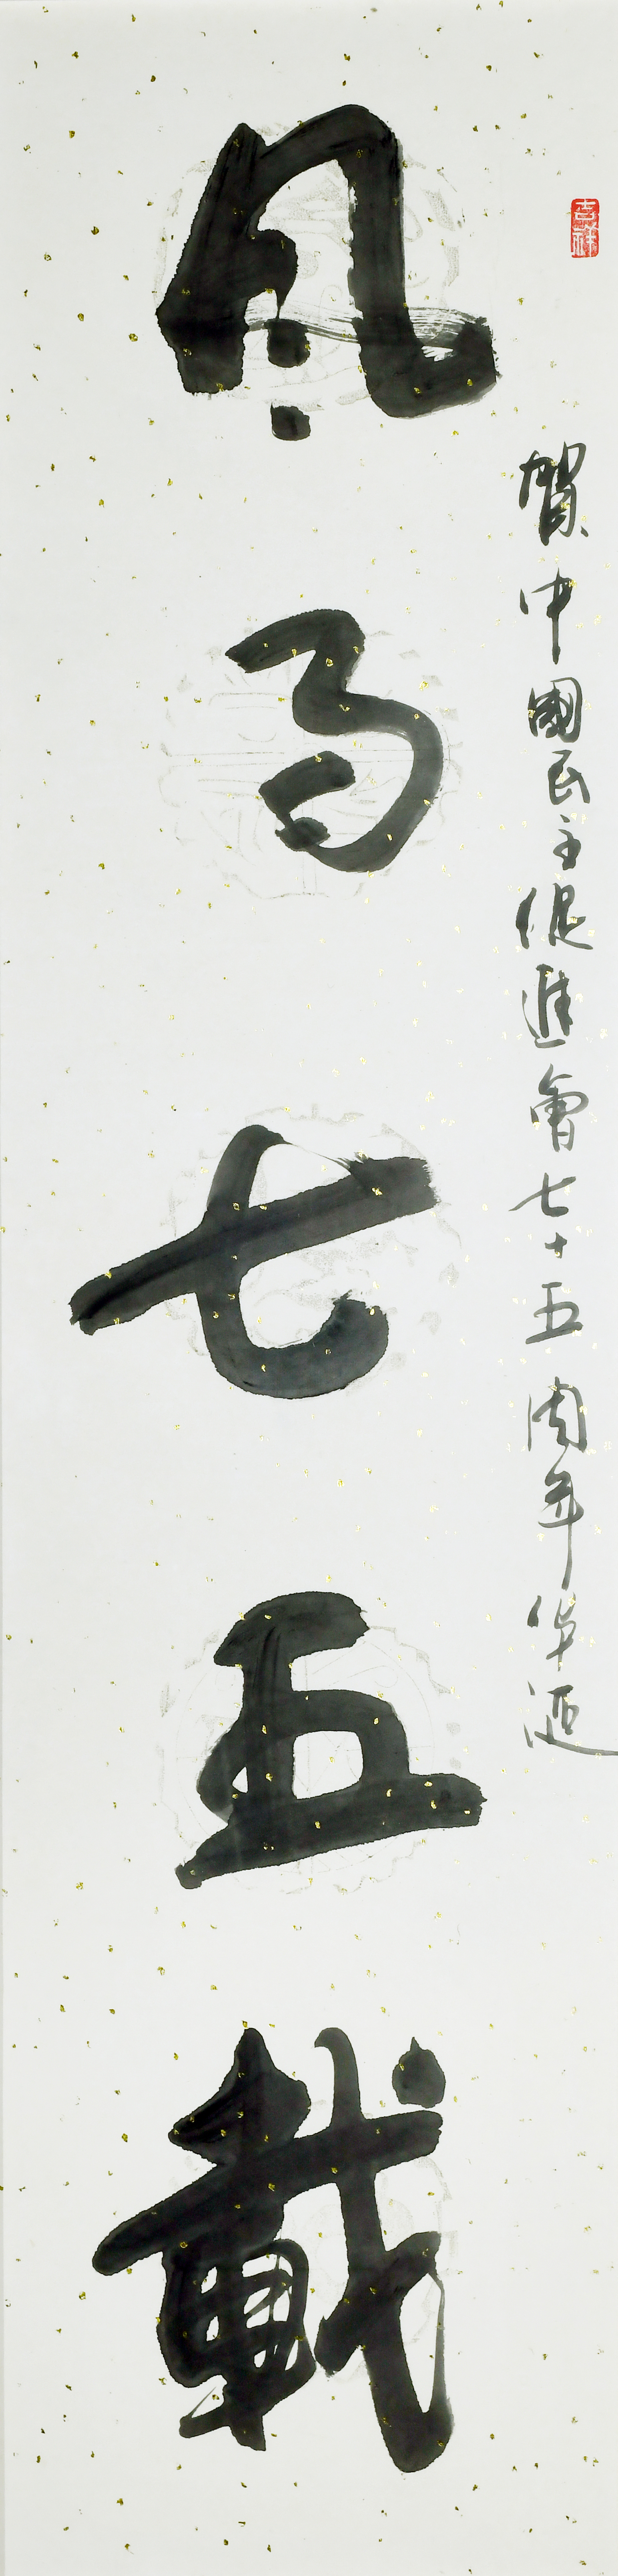 吉祥
賀中國民主促進會七十五周年华诞
风雨七五載